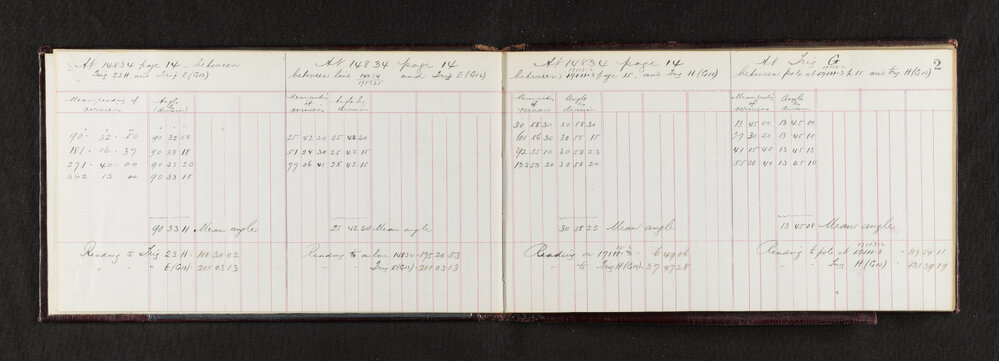 2
At 14834 page 14 - between
Trig 23 H and Trig E (G12)
Mean reading of verniers
Angle by division
90 . 32 . 50 90 32 50
181 . 06 . 37 90 33 18
271 . 40 . 00 90 33 20
362 13 00 90 33 15
90 33 11 Mean angle
Reading to Trig 23 H - 110 30 02
" " E (G12) - 201 03 13
At 14834 page 14
between line 14834 and Trig E (G12)
Mean reading of verniers
Angle by division
25 42 20 25 42 20
51 24 30 25 42 15
77 06 45 25 42 15
25 42 20 Mean angle
Reading to a line 14834 - 175 20 53
" " Trig E (G12) - 201 03 13
At 14834 page 14
between page 15 and Trig H (G12)
Mean reading of verniers
Angle by division
30 58 30 30 58 30
61 56 30 30 58 15
92 55 10 30 58 23
123 53 20 30 58 20
30 58 22 Mean angle
Reading on 17111-3 - 6 49 06
" to Trig H (G12) - 37 47 28
At Trig G
between pole at 17111-3 p 15 and Trig H (G12)
Mean reading of verniers
Angle by division
13 45 00 13 45 00
27 30 20 13 45 10
41 15 40 13 45 13
55 00 40 13 45 10
13 45 08 Mean angle
Reading to pole at 17111-3 - 117 54 11
" " Trig H (G12) - 131 39 19